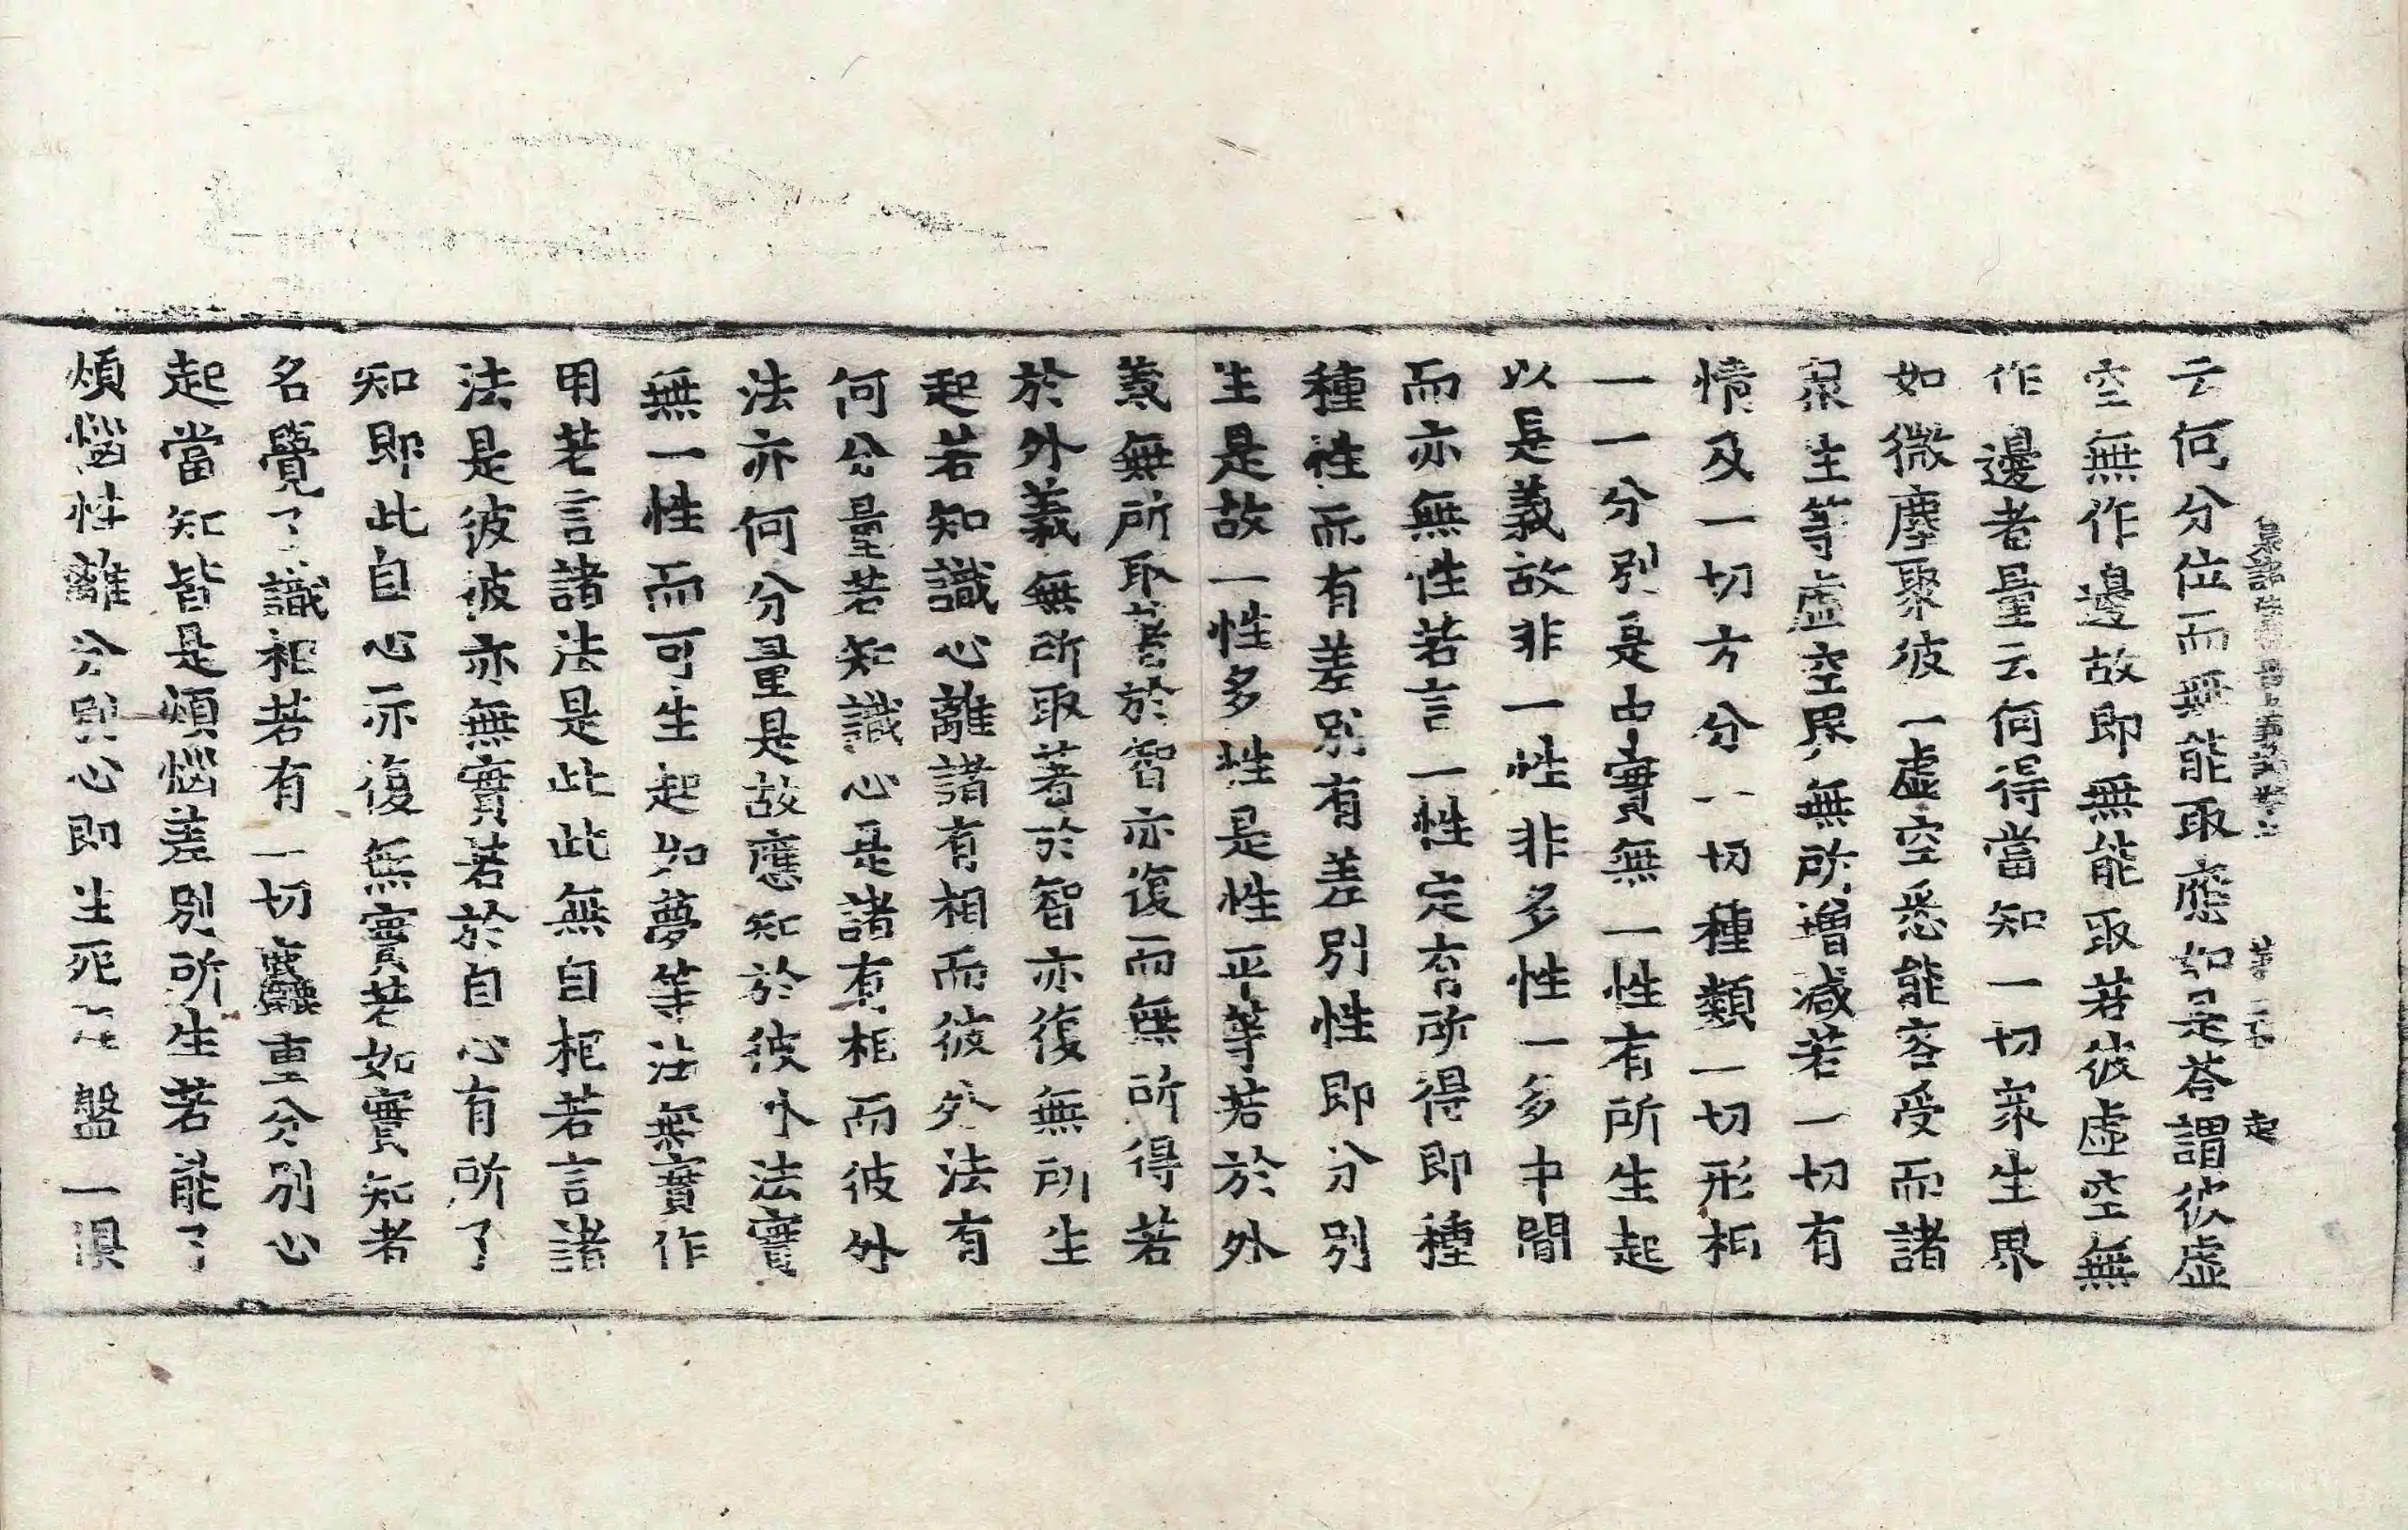 云何分位而無能取應如是荅謂彼虛
空無作邊故即無能取若彼虛空無
作邊者量云何得當知一切衆生界
如微塵聚彼一虛空悉能容受而諸
衆生等虛空界無所增減若一切有
情及一切方分一切種類一切形相
一一分別是中實無一性有所生起
以是義故非一性非多性一多中間
而亦無性若言一性定有所得即種
種性而有差別有差別性即分別
生是故一性多性是性平等若於外
義無所取著於智亦復而無所得若
於外義無所取著於智亦復無所生
起若知識心離諸有相而彼外法有
何分量若知識心是諸有相而彼外
法亦何分量是故應知於彼外法實
無一性而可生起如夢等法無實作
用若言諸法是此此無自相若言諸
法是彼彼亦無實若於自心有所了
知即此自心亦復無實若如實知者
名覺了識相若有一切麤重分別心
起當知皆是煩惱差別所生若能了
煩惱性離分別心即生死 盤一俱
起